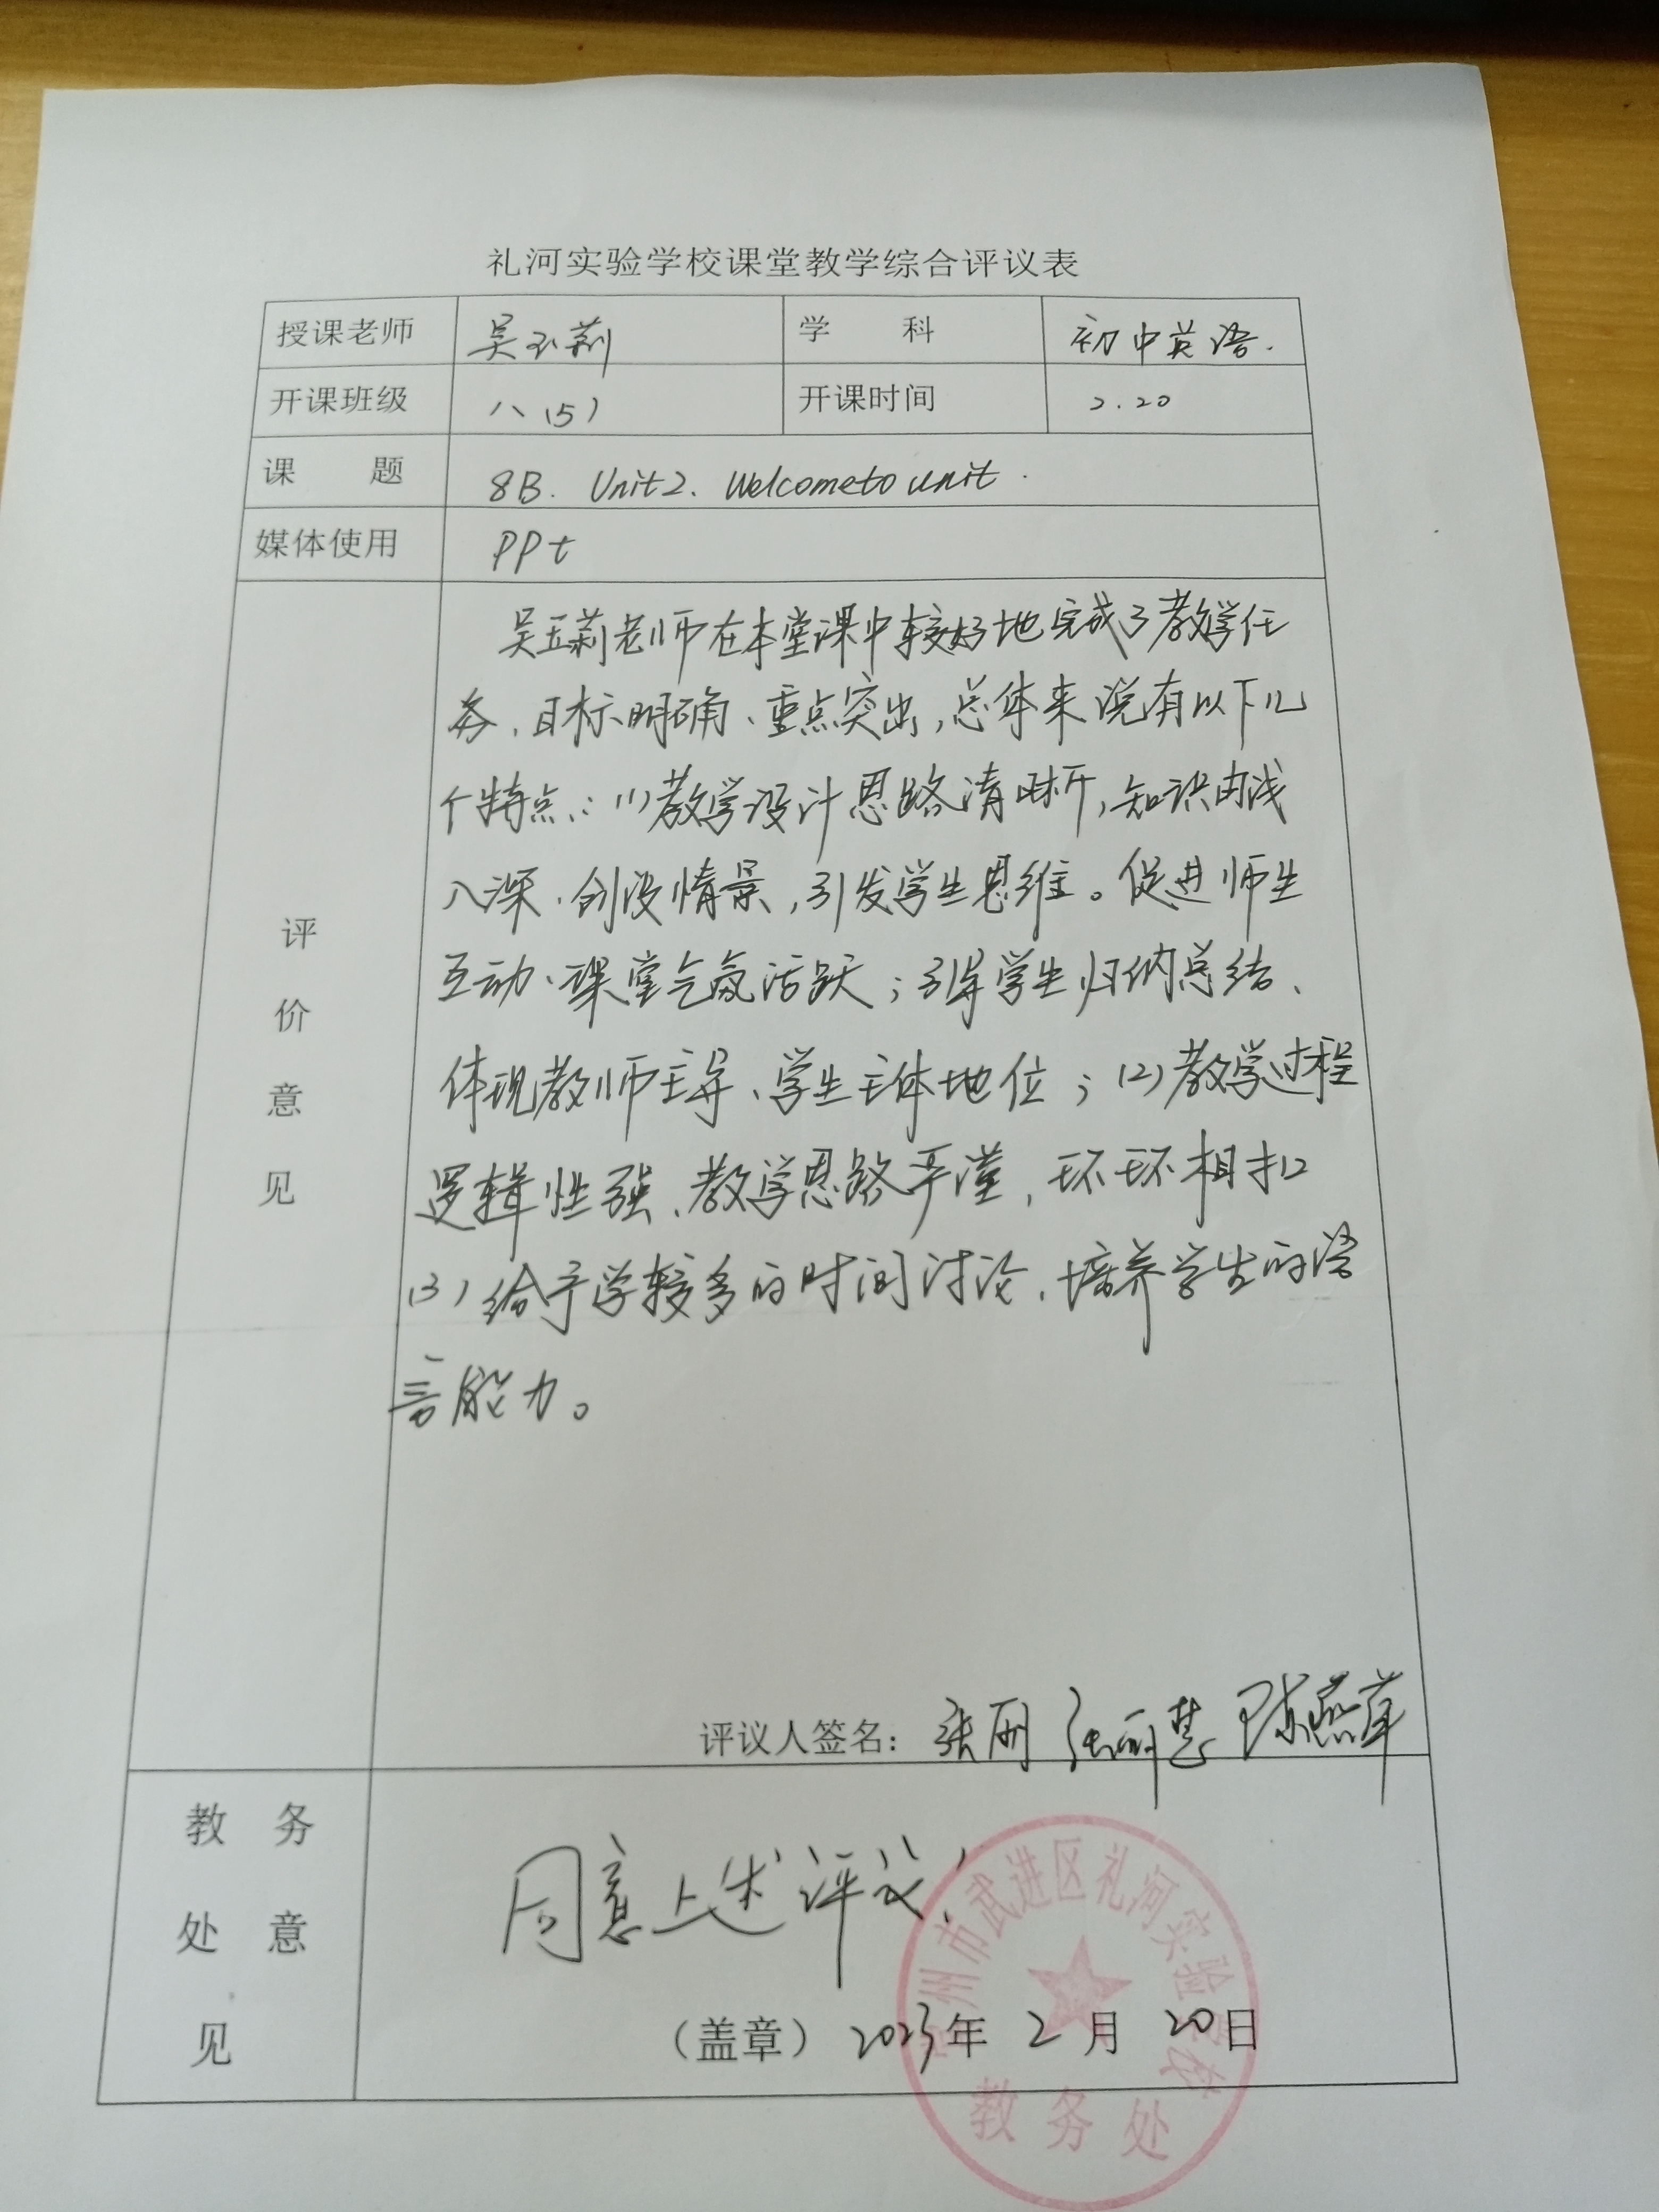 礼河实验学校课堂教学综合评议表
授课老师 吴玉莉 学 科 初中英语.
开课班级 八(5) 开课时间 2.20
课 题 8B. Unit2. Welcome to unit.
媒体使用 PPt
评价意见
吴玉莉老师在本堂课中较好地完成了教学任
务、目标明确、重点突出,总体来说有以下几
个特点:(1)教学设计思路清晰,知识由浅
入深、创设情景,引发学生思维。促进师生
互动、课堂气氛活跃;引导学生归纳总结、
体现教师主导、学生主体地位;(2)教学过程
逻辑性强、教学思路严谨,环环相扣
(3)给予学较多的时间讨论、培养学生的语
言能力。
评议人签名: 张丽 张丽慧 陈燕萍
教务处意见
同意上述评议!
(盖章) 2023年 2月 20日
常州市武进区礼河实验学校
教务处